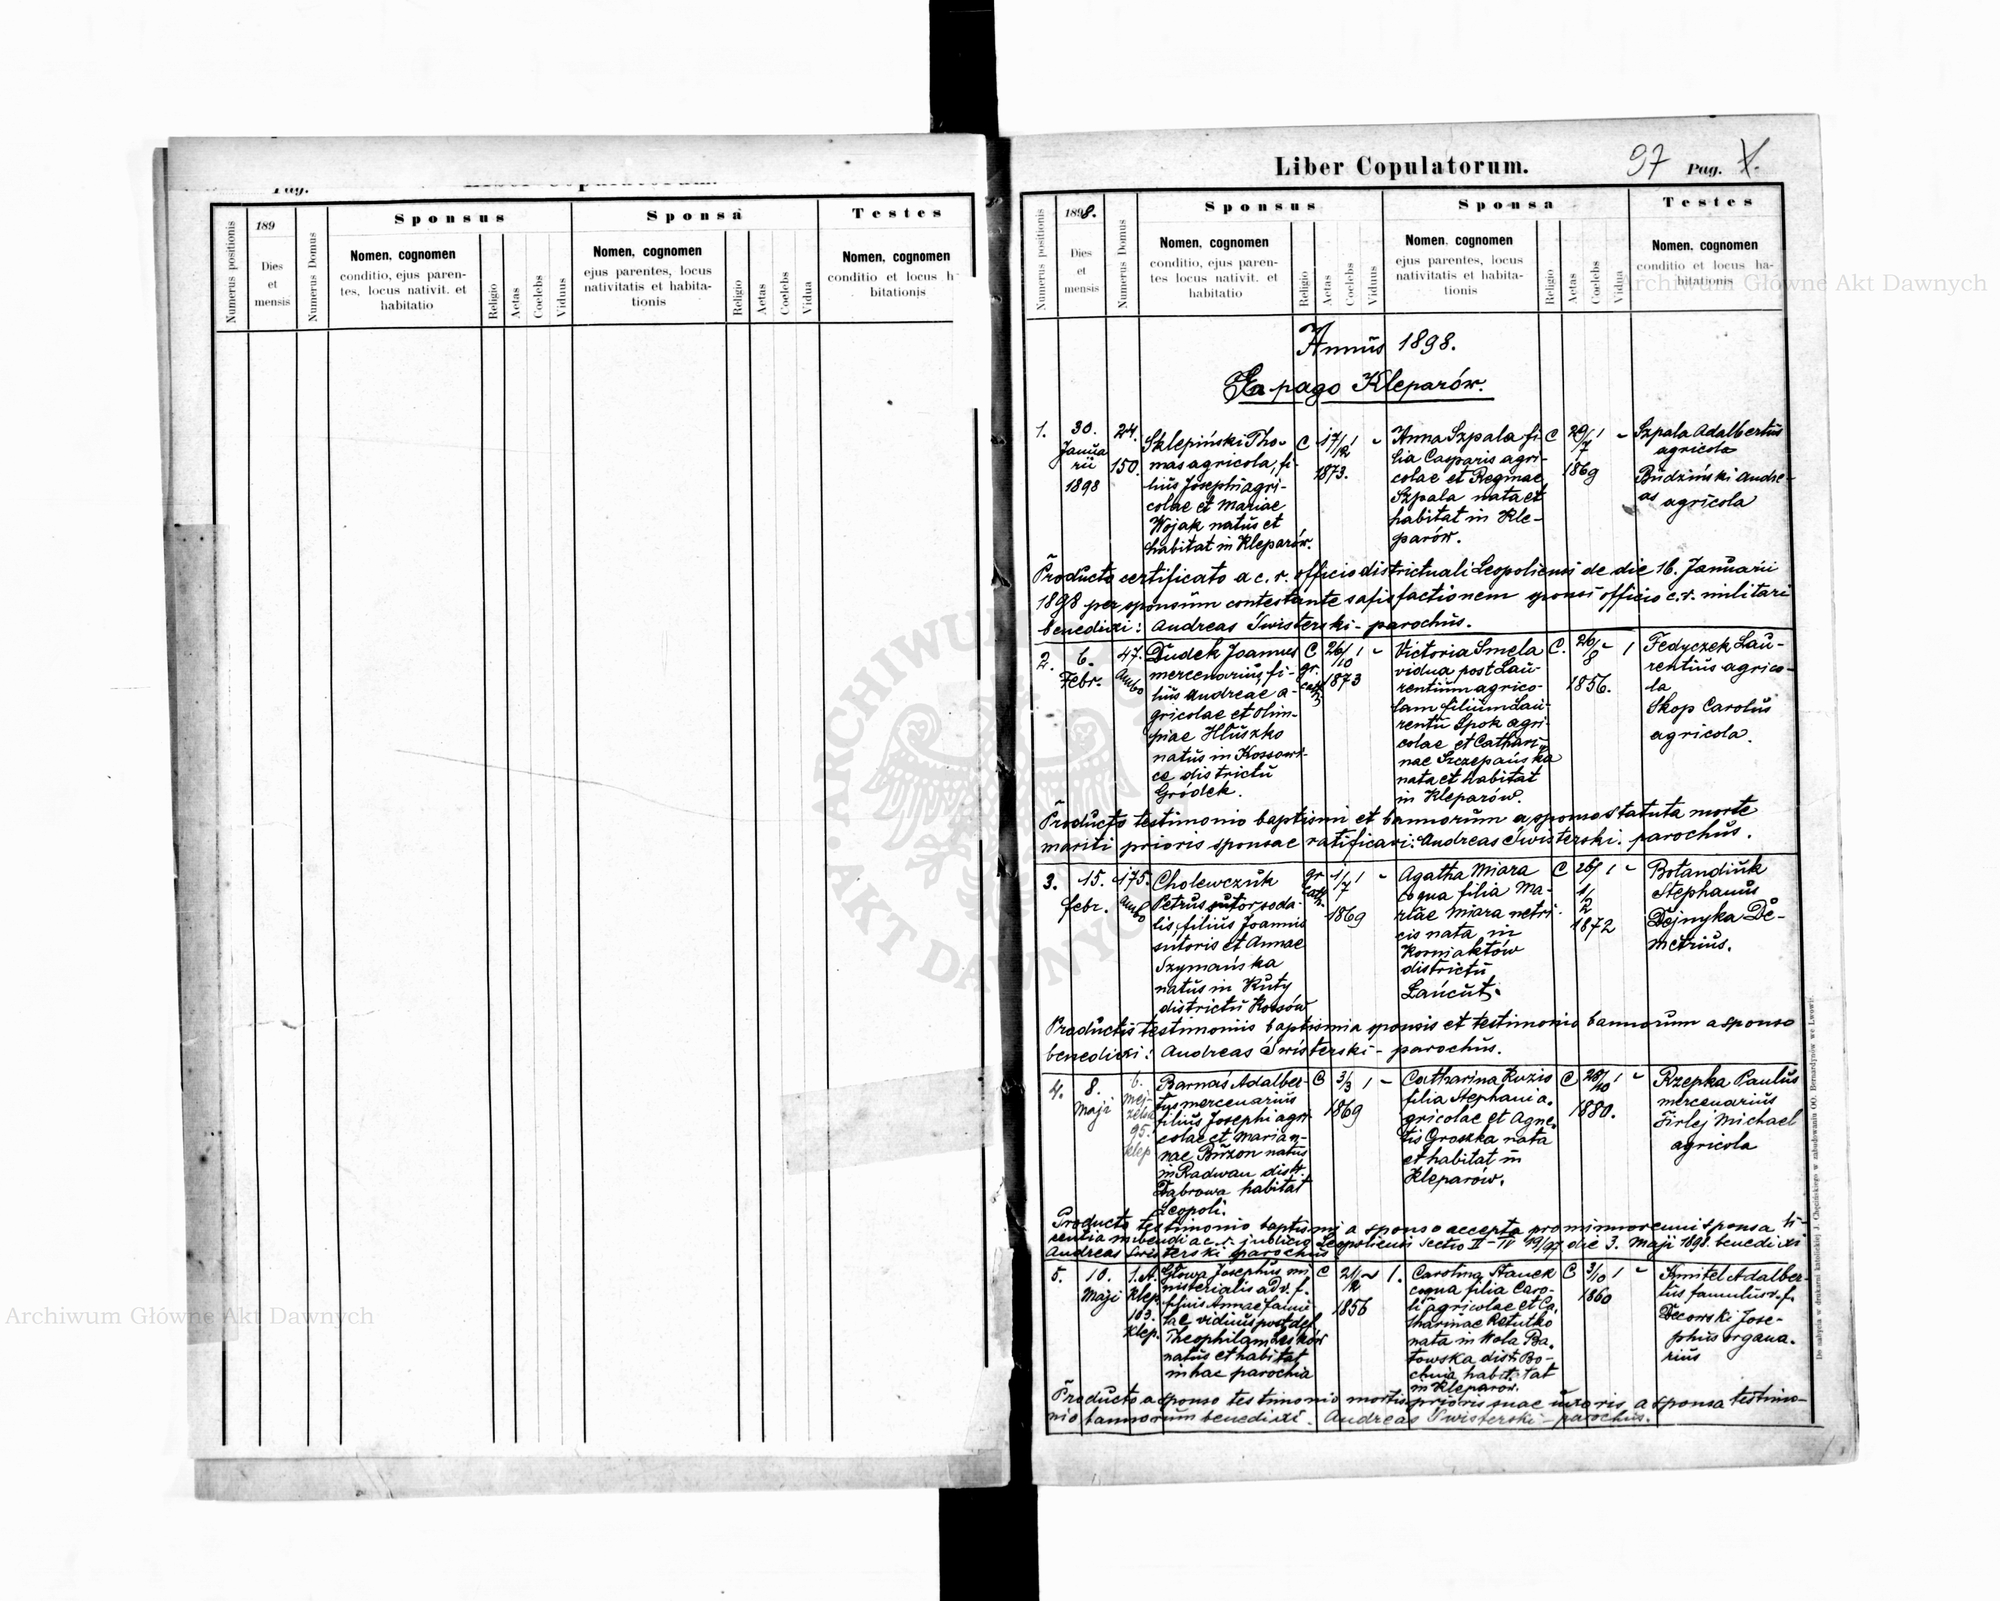 Pag.
Liber Copulatorum.
Numerus positionis
189
Dies
et
mensis
Numerus Domus
Sponsus
Nomen, cognomen
conditio, ejus paren-
tes, locus nativit. et
habitatio
Religio
Aetas
Coelebs
Viduus
Sponsa
Nomen, cognomen
ejus parentes, locus
nativitatis et habita-
tionis
Religio
Aetas
Coelebs
Vidua
Testes
Nomen, cognomen
conditio et locus h
bitationis
Liber Copulatorum.
97 Pag.
Numerus positionis
1898.
Dies
et
mensis
Numerus Domus
Sponsus
Nomen, cognomen
conditio, ejus paren-
tes locus nativit. et
habitatio
Religio
Aetas
Coelebs
Viduus
Sponsa
Nomen, cognomen
ejus parentes, locus
nativitatis et habita-
tionis
Religio
Aetas
Coelebs
Vidua
Testes
Nomen, cognomen
conditio et locus ha-
bitationis
Archiwum Główne Akt Dawnych
Annus 1898.
pago Kleparów.
1.
30.
Janua
rii
1898
24.
150.
Sklepiński Tho-
mas agricola, fi-
lius Josephi agri-
colae et Mariae
Wojak natus et
habitat in Kleparów.
C
17/12
1873.
1
Anna Szpala fi-
lia Casparis agri-
colae et Reginae
Szpala nata et
habitat in Kle-
parów.
C
29/7
1869
1
Szpala Adalbertus
agricola
Budziński Andre-
as agricola
Producto certificato a c. r. officio districtuali Leopoliensi de die 16. Januarii
1898 per sponsum contestante satisfactionem sponsi officio c. r. militari
benedixi: Andreas Świsterski - parochus.
2.
6.
Febr.
47.
Ambo
Dudek Joannes
mercenarius, fi-
lius Andreae a-
gricolae et Olim-
piae Hluszko
natus in Kossowi-
ce districtu
Gródek.
C
gr.
cath
26/10
1873
1
Victoria Smela
vidua post Lau-
rentium agrico-
lam filium Lau-
rentii Spok agri-
colae et Cathari-
nae Szczepańska
nata et habitat
in Kleparów.
C.
26/8
1856.
1
Fedyczek Lau-
rentius agrico-
la
Skop Carolus
agricola.
Producto testimonio baptismi et bannorum a sponso statuta morte
mariti prioris sponsae ratificavi: Andreas Świsterski. parochus.
3.
15.
febr.
175.
Ambo
Cholewczuk
Petrus sutor soda-
lis, filius Joannis
sutoris et Annae
Szymańska
natus in Kuty
districtu Kossów
gr
cath.
1/7
1869
1
Agatha Miara
coqua filia Ma-
riae Miara netri-
cis nata in
Korniaktów
districtu
Łańcut.
C
26/
1/2
1872
1
Bolandiuk
Stephanus
Dejnyka De-
metrius.
Productis testimoniis baptismi a sponsis et testimonio bannorum a sponso
benedixi: Andreas Świsterski - parochus.
4.
8.
Maji
6.
95.
klep
Barnaś Adalber-
tus mercenarius
filius Josephi agri
colae et Marian-
nae Buzon natus
in Radwan distr.
Dąbrowa habitat
Leopoli.
C
3/3
1869
1
Catharina Kuzio
filia Stephani a-
gricolae et Agne-
tis Groszka nata
et habitat in
Kleparów.
C
28/10
1880.
1
Rzepka Paulus
mercenarius
Firlej Michael
agricola
Producto testimonio baptismi a sponso accepta pro minorenni sponsa li-
centia nubendi a c. r. judicio Leopoliensi Sectio II-IV 19/97 die 3. Maji 1898. benedixi
Andreas Świsterski parochus
5.
10.
Maji
1. A.
klep
103.
klep.
Głowa Josephus mi
nisterialis ad v. f.
filius Annae famu
lae viduus post def.
Theophilam
natus et habitat
in hac parochia
C
21/2
1856
1.
Carolina Stanek
coqua filia Caro-
li agricolae et Ca-
tharinae Retutko
nata in Wola Ba-
towska distr. Bo-
chnia habitat
in Kleparów.
C
3/10
1860
1
Kmitel Adalber-
tus famulus v. f.
Decowski Jose-
phus organa-
rius
Producto a sponso testimonio mortis prioris suae uxoris a sponsa testimo-
nio bannorum benedixi. Andreas Świsterski - parochus.
Do nabycia w drukarni katolickiej J. Chęcińskiego w zabudowaniu OO. Bernardynów we Lwowie.
Archiwum Główne Akt Dawnych
ARCHIWUM
AKT DAWNYCH